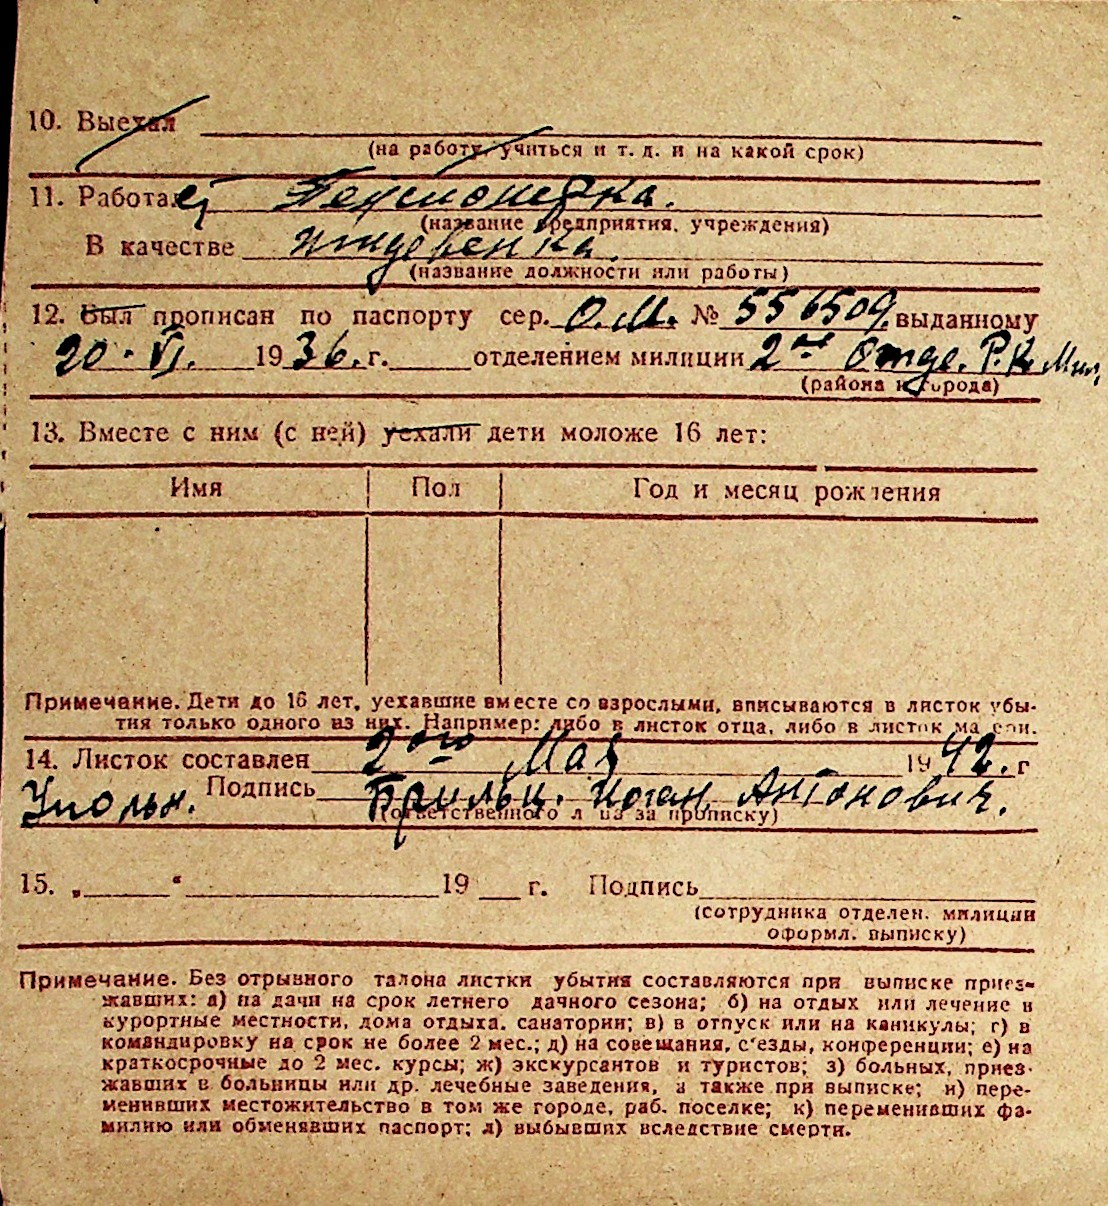 10. Выехал
(на работу, учиться и т. д. и на какой срок)
11. Работает Пенсионерка.
(название предприятия, учреждения)
В качестве иждевенка.
(название должности или работы)
12. Был прописан по паспорту сер. О.М. № 556509. выданному
20. VI. 1936. г. отделением милиции 2ое Отде. Р.К. Мил,
(района и города)
13. Вместе с ним (с ней) уехали дети моложе 16 лет:
Имя Пол Год и месяц рождения
Примечание. Дети до 16 лет, уехавшие вместе со взрослыми, вписываются в листок убы-
тия только одного из них. Например: либо в листок отца, либо в листок матери.
14. Листок составлен 2ого Мая 1942. г
Уполн. Подпись Иоган, Антонович.
(ответственного лица за прописку)
15. „ “ 19 г. Подпись
(сотрудника отделен. милиции
оформл. выписку)
Примечание. Без отрывного талона листки убытия составляются при выписке приез-
жавших: а) на дачи на срок летнего дачного сезона; б) на отдых или лечение в
курортные местности, дома отдыха, санатории; в) в отпуск или на каникулы; г) в
командировку на срок не более 2 мес.; д) на совещания, с'езды, конференции; е) на
краткосрочные до 2 мес. курсы; ж) экскурсантов и туристов; з) больных, приез-
жавших в больницы или др. лечебные заведения, а также при выписке; и) пере-
менивших местожительство в том же городе, раб. поселке; к) переменивших фа-
милию или обменявших паспорт; л) выбывших вследствие смерти.